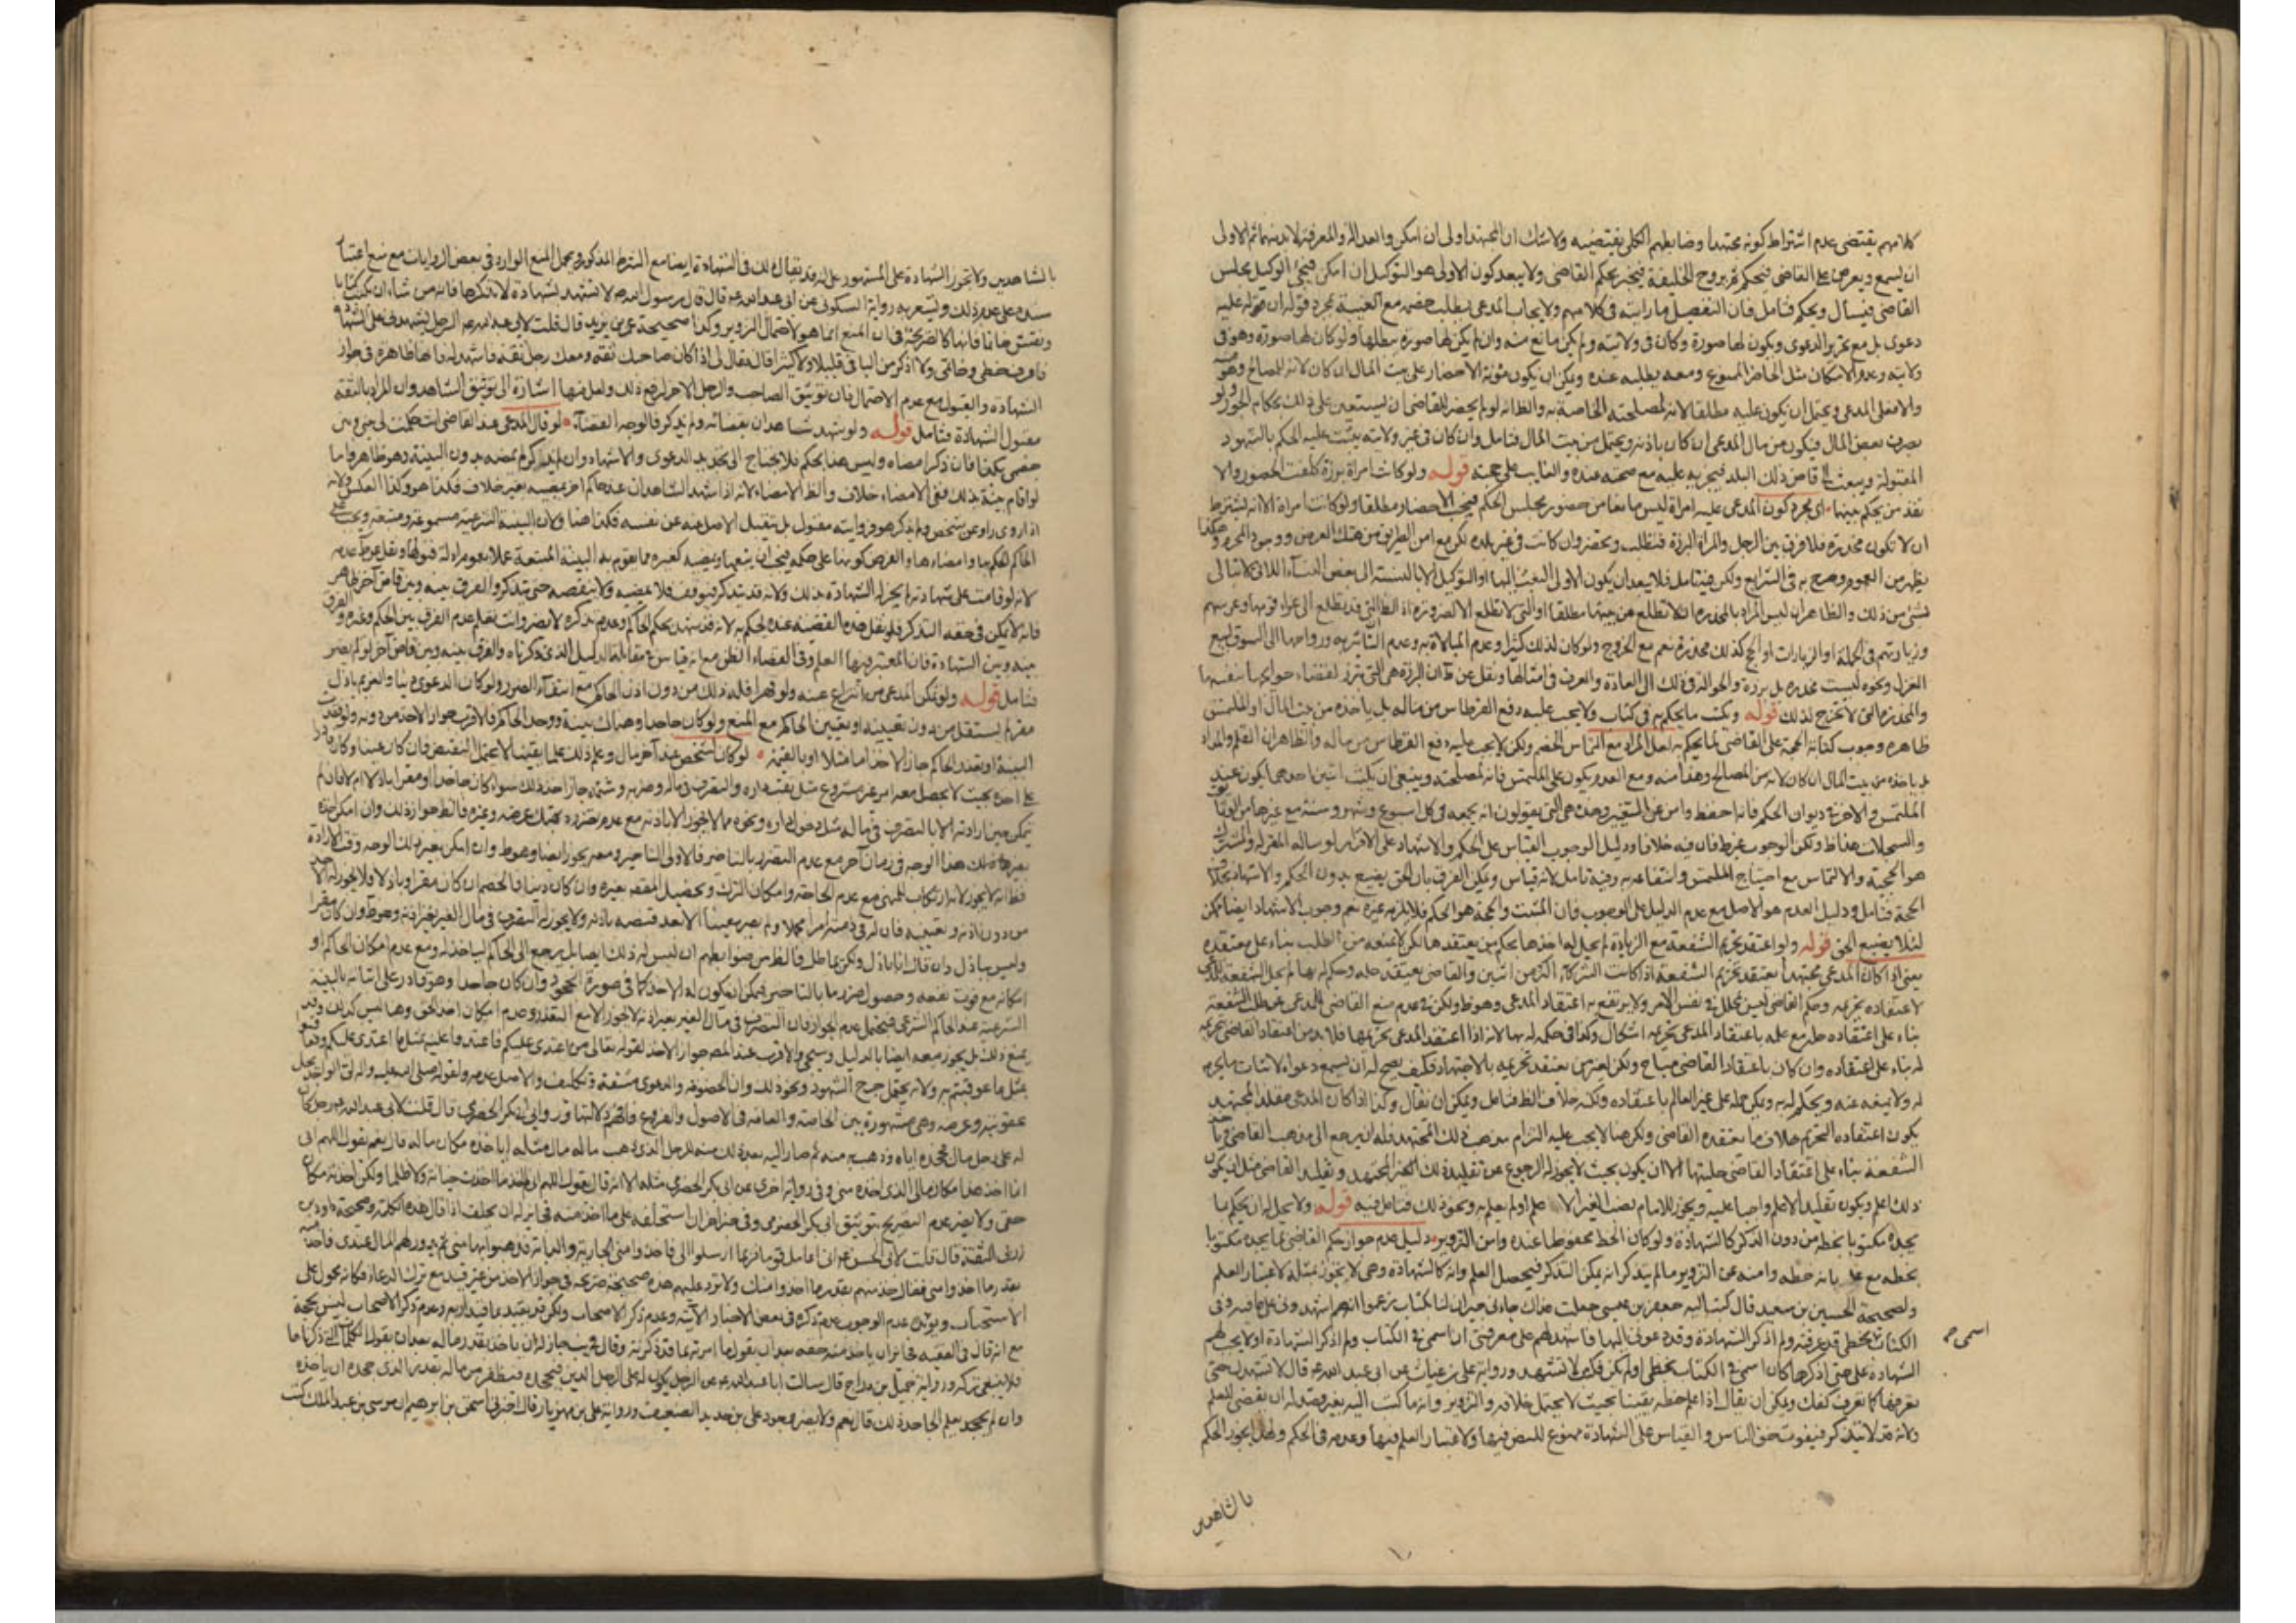 كلامهم يقتضى عدم اشتراط كونه مجتهدا وضابطهم الكلى يقتضيه ولاشك ان المجتهد اولى ان امكن والعدالة والمعرفة لابد منهما ثم الاولى
ان يسمع ويعرض على القاضى فيحكم ثم يروح الخليفة فيخبر بحكم القاضى ولا يبعد كون الاولى هو التوكيل ان امكن فيجئ الوكيل مجلس
القاضى فيسأل ويحكم فتامل فان التفصيل ما رايته فى كلامهم ولا يجاب المدعى بطلب خصمه مع الغيبة بمجرد قوله ان له عليه
دعوى بل مع تحرير الدعوى ويكون لها صورة وكان فى ولايته ولم يكن مانع منه وان لم يكن لها صورة يبطلها ولو كان لها صورة وهو فى
ولايته وعدم الامكان مثل الحاضر الممنوع ومعه يطلبه عنده ويمكن ان يكون مؤنة الاحضار على بيت المال ان كان لانه للمصالح
والا فعلى المدعى ويحتمل ان يكون عليه مطلقا لانه لمصلحته الخاصة به والظاهر انه لو لم يحضر للقاضى ان يستعين على ذلك بحكام الجور ولو
بصرف بعض المال فيكون من مال المدعى ان كان باذنه ويحتمل من بيت المال فتامل وان كان فى غير ولايته يثبت عليه الحكم بالشهود
المقبولة ويبعث الى قاض ذلك البلد فيجريه عليه مع صحته عنده والغايب على حجته قوله ولو كانت امراة برزة كلفت الحضور والا
نفذ من يحكم بينهما اى مجرد كون المدعى عليه امراة ليس مانعا من حضور مجلس الحكم فيجب الاحضار مطلقا ولو كانت امراة الا انه يشترط
ان لا تكون مخدرة فلا فرق بين الرجل والمراة البرزة فتطلب وتحضر وان كانت فى غير بلده لكن مع امن الطريق من هتك العرض ووجود المحرم هكذا
يظهر من العموم وصرح به فى الشرايع ولكن فيه تامل فلا يبعد ان يكون الاولى البعث اليها او التوكيل الا بالنسبة الى بعض النساء اللاتى لا تبالى
بشئ من ذلك والظاهر ان ليس المراد بالمخدرة ان لا تطلع من بيتها مطلقا او التى لا تطلع الا لضرورة اذ التى قد تطلع الى عزاء قومها وعرسهم
وزيارتهم فى الجملة او الزيارات او الحج كذلك مخدرة نعم مع الخروج ولو كان لذلك كثيرا وعدم المبالاة به وعدم التأثير به ورواحها الى السوق لبيع
الغزل ونحوه ليست مخدرة بل برزة والحوالة فى ذلك الى العادة والعرف فى امثالها ونقل عن ط ان البرزة هى التى تبرز لقضاء حوايجها بنفسها
والمخدرة التى لا تخرج لذلك قوله وكتب ما يحكم به فى كتاب ولا يجب عليه دفع القرطاس من ماله بل ياخذه من بيت المال او الملتمس
ظاهره وجوب كتابة الحجة على القاضى لما يحكم به لعل المراد مع التماس الخصم ولكن لا يجب عليه دفع القرطاس من ماله والظاهر ان القلم والمداد
بل ياخذه من بيت المال ان كان لانه من المصالح وهذا منه ومع العدم يكون على الملتمس فانه لمصلحته وينبغى ان يكتب اثنين احديهما يكون عند
الملتمس والاخر فى ديوان الحكم فانه احفظ وامن عن التغيير وهذه هى التى يقولون انه يجمعه فى كل اسبوع وشهر وسنة مع غيرها من
والسجلات هذا ظ ولكن الوجوب غير ظ فان فيه خلافا ودليل الوجوب القياس على الحكم والاشهاد على الاقرار لو ساله المقر له والمشترك
هو الحجية والالتماس مع احتياج الملتمس وانتفاعه به وفيه تامل لانه قياس ويمكن الفرق بان الحق يضيع بدون الحكم والاشهاد بخلاف
الحجة فتامل ودليل العدم هو الاصل مع عدم الدليل على الوجوب فان المثبت والحجة هو الحكم فلا يلزمه غيره نعم وجوب الاشهاد ايضا ممكن
لئلا يضيع الحق قوله ولو اعتقد تحريم الشفعة مع الزيادة لم يحل له اخذها بحكم من يعتقدها لكن لا يمنعه من الطلب بناء على معتقده
يعنى اذا كان المدعى مجتهدا يعتقد تحريم الشفعة اذا كانت الشركاء اكثر من اثنين والقاضى يعتقد حله وحكم له بها لم يحل الشفعة للمدعى
لاعتقاده تحريمه وحكم القاضى ليس بمحلل فى نفس الامر ولا يرتفع به اعتقاد المدعى وهو ظ ولكن فى عدم منع القاضى للمدعى عن طلب الشفعة
بناء على اعتقاده حله مع علمه باعتقاد المدعى تحريمه اشكال وكذا فى حكمه له بها لانه اذا اعتقد المدعى تحريمها فلا بد من اعتقاد القاضى تحريمه
له بناء على اعتقاده وان كان باعتقاد القاضى مباح ولكن لغير من يعتقد تحريمه بالاجتهاد فكيف يصح له ان يسمع دعواه لاثبات ما يحرم
له ولا يمنعه عنه ويحكم له به ويمكن حمله على غير العالم باعتقاده ولكنه خلاف الظ فتامل ويمكن ان يقال وكذا اذا كان المدعى مقلد المجتهد
يكون اعتقاده التحريم خلاف ما يعتقده القاضى ولكن هنا لا يجب عليه التزام مذهب ذلك المجتهد فله ان يرجع الى مذهب القاضى
الشفعة بناء على اعتقاد القاضى حليتها الا ان يكون بحيث لا يجوز له الرجوع عن تقليد ذلك المجتهد وتقليد القاضى مثل ان يكون
ذلك اعلم ويكون تقليد الاعلم واجبا عليه ويجوز للامام نصب الغير الاعلم او لم يعلم به ونحو ذلك فتامل فيه قوله ولا يحل له ان يحكم بما
يجده مكتوبا بخطه من دون الذكر كالشهادة ولو كان الخط محفوظا عنده وامن التزوير دليل عدم جواز حكم القاضى بما يجده مكتوبا
بخطه مع علمه بانه خطه وامنه عن التزوير ما لم يتذكر انه يمكن التذكر فيحصل العلم وانه كالشهادة وهى لا يجوز بمثله لاعتبار العلم
ولصحيحة الحسين بن سعيد قال كتب اليه جعفر بن عيسى جعلت فداك جاءنى جيران لنا بكتاب زعموا انهم اشهدونى على ما فيه وفى
الكتاب بخطى قد عرفته ولم اذكر الشهادة وقد دعونى اليها فاشهد لهم على معرفتى ان اسمى فى الكتاب ولم اذكر الشهادة او لا يجب لهم
اسمى صح
الشهادة على حتى اذكرها كان اسمى فى الكتاب بخطى او لم يكن فكتب لا تشهد ورواية على بن غياث عن ابى عبد الله ع قال لا تشهدن حتى
تعرفها كما تعرف كفك ويمكن ان يقال اذا علم خطه يقينا بحيث لا يحتمل خلافه والتزوير وانه ما كتب اليه بغير قصد له ان يقضى للعلم
ولانه قد لا يتذكر فيفوت حق الناس والقياس على الشهادة ممنوع للنص فيها ولاعتبار العلم فيها وعدمه فى الحكم ولهذا يجوز الحكم
بالشاهدين
بالشاهدين ولا تجوز الشهادة على المشهور بل انه قد يقال ذلك فى الشهادة ايضا مع الشرط المذكور ويحمل المنع الوارد فى بعض الروايات مع منع اعتبار
سنده على عدم ذلك ويشعر به رواية السكونى عن ابى عبد الله ع قال قال رسول الله ص لا تشهد بشهادة لا تذكرها فانه من شاء ان كتب كتابا
ونقش خاتما فانها كالصريحة فى ان المنع انما هو لاحتمال التزوير وكذا صحيحة عمر بن يزيد قال قلت لابى عبد الله ع الرجل يشهدنى على الشهادة
فاعرف خطى وخاتمى ولا اذكر من الباقى قليلا ولا كثيرا قال فقال لى اذا كان صاحبك ثقة ومعك رجل ثقة فاشهد له فانها ظاهرة فى جواز
الشهادة والقبول مع عدم الاحتمال فان توثيق الصاحب والرجل الاخر لرفع ذلك ولعل فيها اشارة الى توثيق الشاهد وان المراد بالثقة
مقبول الشهادة فتامل قوله ولو شهد شاهدان بقضائه ولم يذكر فالوجه القضاء لو قال المدعى عند القاضى انت حكمت لى على
خصمى بكذا فان ذكر امضاه وليس هنا بحكم فلا يحتاج الى تجديد الدعوى والاشهاد وان لم يذكر لم يمضه بدون البينة وهو ظاهر واما
لو اقام بينة بذلك ففى الامضاء خلاف والظ الامضاء لانه اذا شهد الشاهدان عند حاكم اخر يمضيه بغير خلاف فكذا هو وكذا العكس ولانه
اذا روى راو عن شخص ولم يذكر هو فروايته مقبول بل يقبل الاصل عنه عن نفسه فكذا هنا ولان البينة الشرعية مسموعة ومتبعة ويجب على
الحاكم الحكم بها وامضاءها والفرض كونها على حكمه فيجب ان يتبعها ويمضيه كغيره مما يقوم به البينة المتبعة عملا بعموم ادلة قبولها ونقل عن ط عدمه
لانه لو قامت على شهادته لم يجز له الشهادة بذلك ولانه قد يتذكر فيتوقف فلا يمضيه ولا ينقضه حتى يتذكر والفرق بينه وبين قاض آخر ظاهر
فانه لا يمكن فى حقه التذكر فلو نقل هذه القضية عنده يحكم به لانه قد يشهد بحكم الحاكم وعدم تذكره لا يضر وانت تعلم عدم الفرق بين الحكم وغيره والفرق
بينه وبين الشهادة فان المعتبر فيها العلم وفى القضاء الظن مع انه قياس فى مقابلة الدليل الذى ذكرناه والفرق بينه وبين قاض آخر لو لم يضر
فتامل قوله ولو تمكن المدعى من انتزاع عينه ولو قهرا فله ذلك من دون اذن الحاكم مع انتفاء الضرر ولو كان الدعوى دينا والغريم باذل
مقر لم يستقل من دون تعيينه او تعيين الحاكم مع المنع ولو كان جاحدا وهناك بينة ووجد الحاكم فالاقرب جواز الاخذ من دونه ولو فقدت
البينة او تعذر الحاكم جاز الاخذ اما مثلا او بالقيمة لو كان لشخص عند آخر مال وعلم ذلك علما يقينا لا يحتمل النقيض فان كان عينا وكان قادرا
على اخذه بحيث لا يحصل معه امر غير مشروع مثل نقب داره والتصرف فى ماله وضربه وشتمه جاز اخذ ذلك سواء كان جاحدا او مقرا باذلا ام لا فان لم
يمكن حين ارادته الا بالتصرف فى ماله مثل دخول داره ونحوه مما لا يجوز الا باذنه مع عدم تضرره بهتك عرضه وغيره فالظ جواز ذلك وان امكن اخذه
بغير ذلك هذا الوجه فى زمان آخر مع عدم التضرر بالتاخير فالاولى التاخير ومعه يجوز ايضا وهو ظ وان امكن بغير ذلك الوجه وقت الارادة
فظ انه لا يجوز لانه ارتكاب المنهى مع عدم الحاجة وامكان الترك وتحصيل المقصد بغيره وان كان دينا فالخصم ان كان مقرا وباذلا فلا يجوز له الاخذ
من دون اذنه وتعيينه فان له فى ذمته امرا مجملا ولم يصر معينا الا بعد قبضه باذنه ولا يجوز له التصرف فى مال الغير بغير اذنه وهو ظ وان كان مقرا
وليس بباذل وان قال انا باذل ولكن يماطل فالظ من ضوابطهم ان ليس له ذلك ايضا بل يرجع الى الحاكم لياخذ له ومع عدم امكان الحاكم او
امكانه مع فوت نفعه وحصول ضرر ما بالتاخير فيمكن ان يكون له الاخذ كما فى صورة الجحود وان كان جاحدا وهو قادر على اثباته بالبينة
الشرعية عند الحاكم الشرعى فيحتمل عدم الجواز فان التصرف فى مال الغير بغير اذنه لا يجوز الا مع التعذر وعدم امكان اخذ الحق وهنا ليس كذلك وقد
يمنع ذلك بل يجوز معه ايضا بالدليل وسيجئ والاقرب عند المصنف جواز الاخذ لقوله تعالى من اعتدى عليكم فاعتدوا عليه بمثل ما اعتدى عليكم وقوله
بمثل ما عوقبتم به ولانه يحتمل جرح الشهود ونحو ذلك وان الخصومة والدعوى مشقة وتكليف والاصل عدمه ولقوله صلى الله عليه وآله لى الواجد يحل
عقوبته وعرضه وهى مشهورة بين الخاصة والعامة فى الاصول والفروع ورواية ابى بكر الحضرمى قال قلت لابى عبد الله ع رجل كان
له على رجل مال فجحده اياه وذهب به منه ثم صار اليه بعد ذلك منه للرجل الذى ذهب ماله مال مثله اياخذه مكان ماله قال نعم يقول اللهم انى
انما اخذ هذا مكان مالى الذى اخذه منى وفى رواية اخرى عن ابى بكر الحضرمى مثله الا انه قال يقول اللهم انى لم آخذ ما اخذت خيانة ولا ظلما ولكن اخذته مكان
حقى ولا يضر عدم التصريح بتوثيق ابى بكر الحضرمى وفى خبر آخر ان استحلفه على ما اخذ منه فجائز له ان يحلف اذا قال هذه الكلمة وصحيحة داود بن
زربى الثقة قال قلت لابى الحسن ع انى اعامل قوما فربما ارسلوا الى فاخذوا منى الجارية والدابة فذهبوا بها منى ثم يدور لهم المال عندى فآخذ منه
بقدر ما اخذوا منى فقال خذ منهم بقدر ما اخذوا منك ولا تزد عليهم هذه صحيحة صريحة فى جواز الاخذ من غير قيد مع ترك الدعاء فكانه محمول على
الاستحباب ويؤيده عدم الوجوب عدم ذكره فى بعض الاخبار الآتية وعدم ذكر الاصحاب ولكن قد يقيد بما قيد به وعدم ذكر الاصحاب ليس بحجة
مع انه قال فى الفقيه فجائز ان ياخذ منه حقه بعد ان يقول ما امر به مما قد ذكرته وقال فى يب جاز له ان ياخذ بقدر ماله بعد ان يقول الكلمات التى ذكرناها
فلا ينبغى تركه ورواية جميل بن دراج قال سالت ابا عبد الله ع عن الرجل يكون له على الرجل الدين فيجحده فيظفر من ماله بقدر الذى جحده ان ياخذه
وان لم يجحد بعلم الجاحد ذلك قال نعم ولا يضر وجود على بن حديد الضعيف ورواية على بن مهزيار قال اخبرنى اسحق بن ابرهيم ان موسى بن عبد الملك كتب